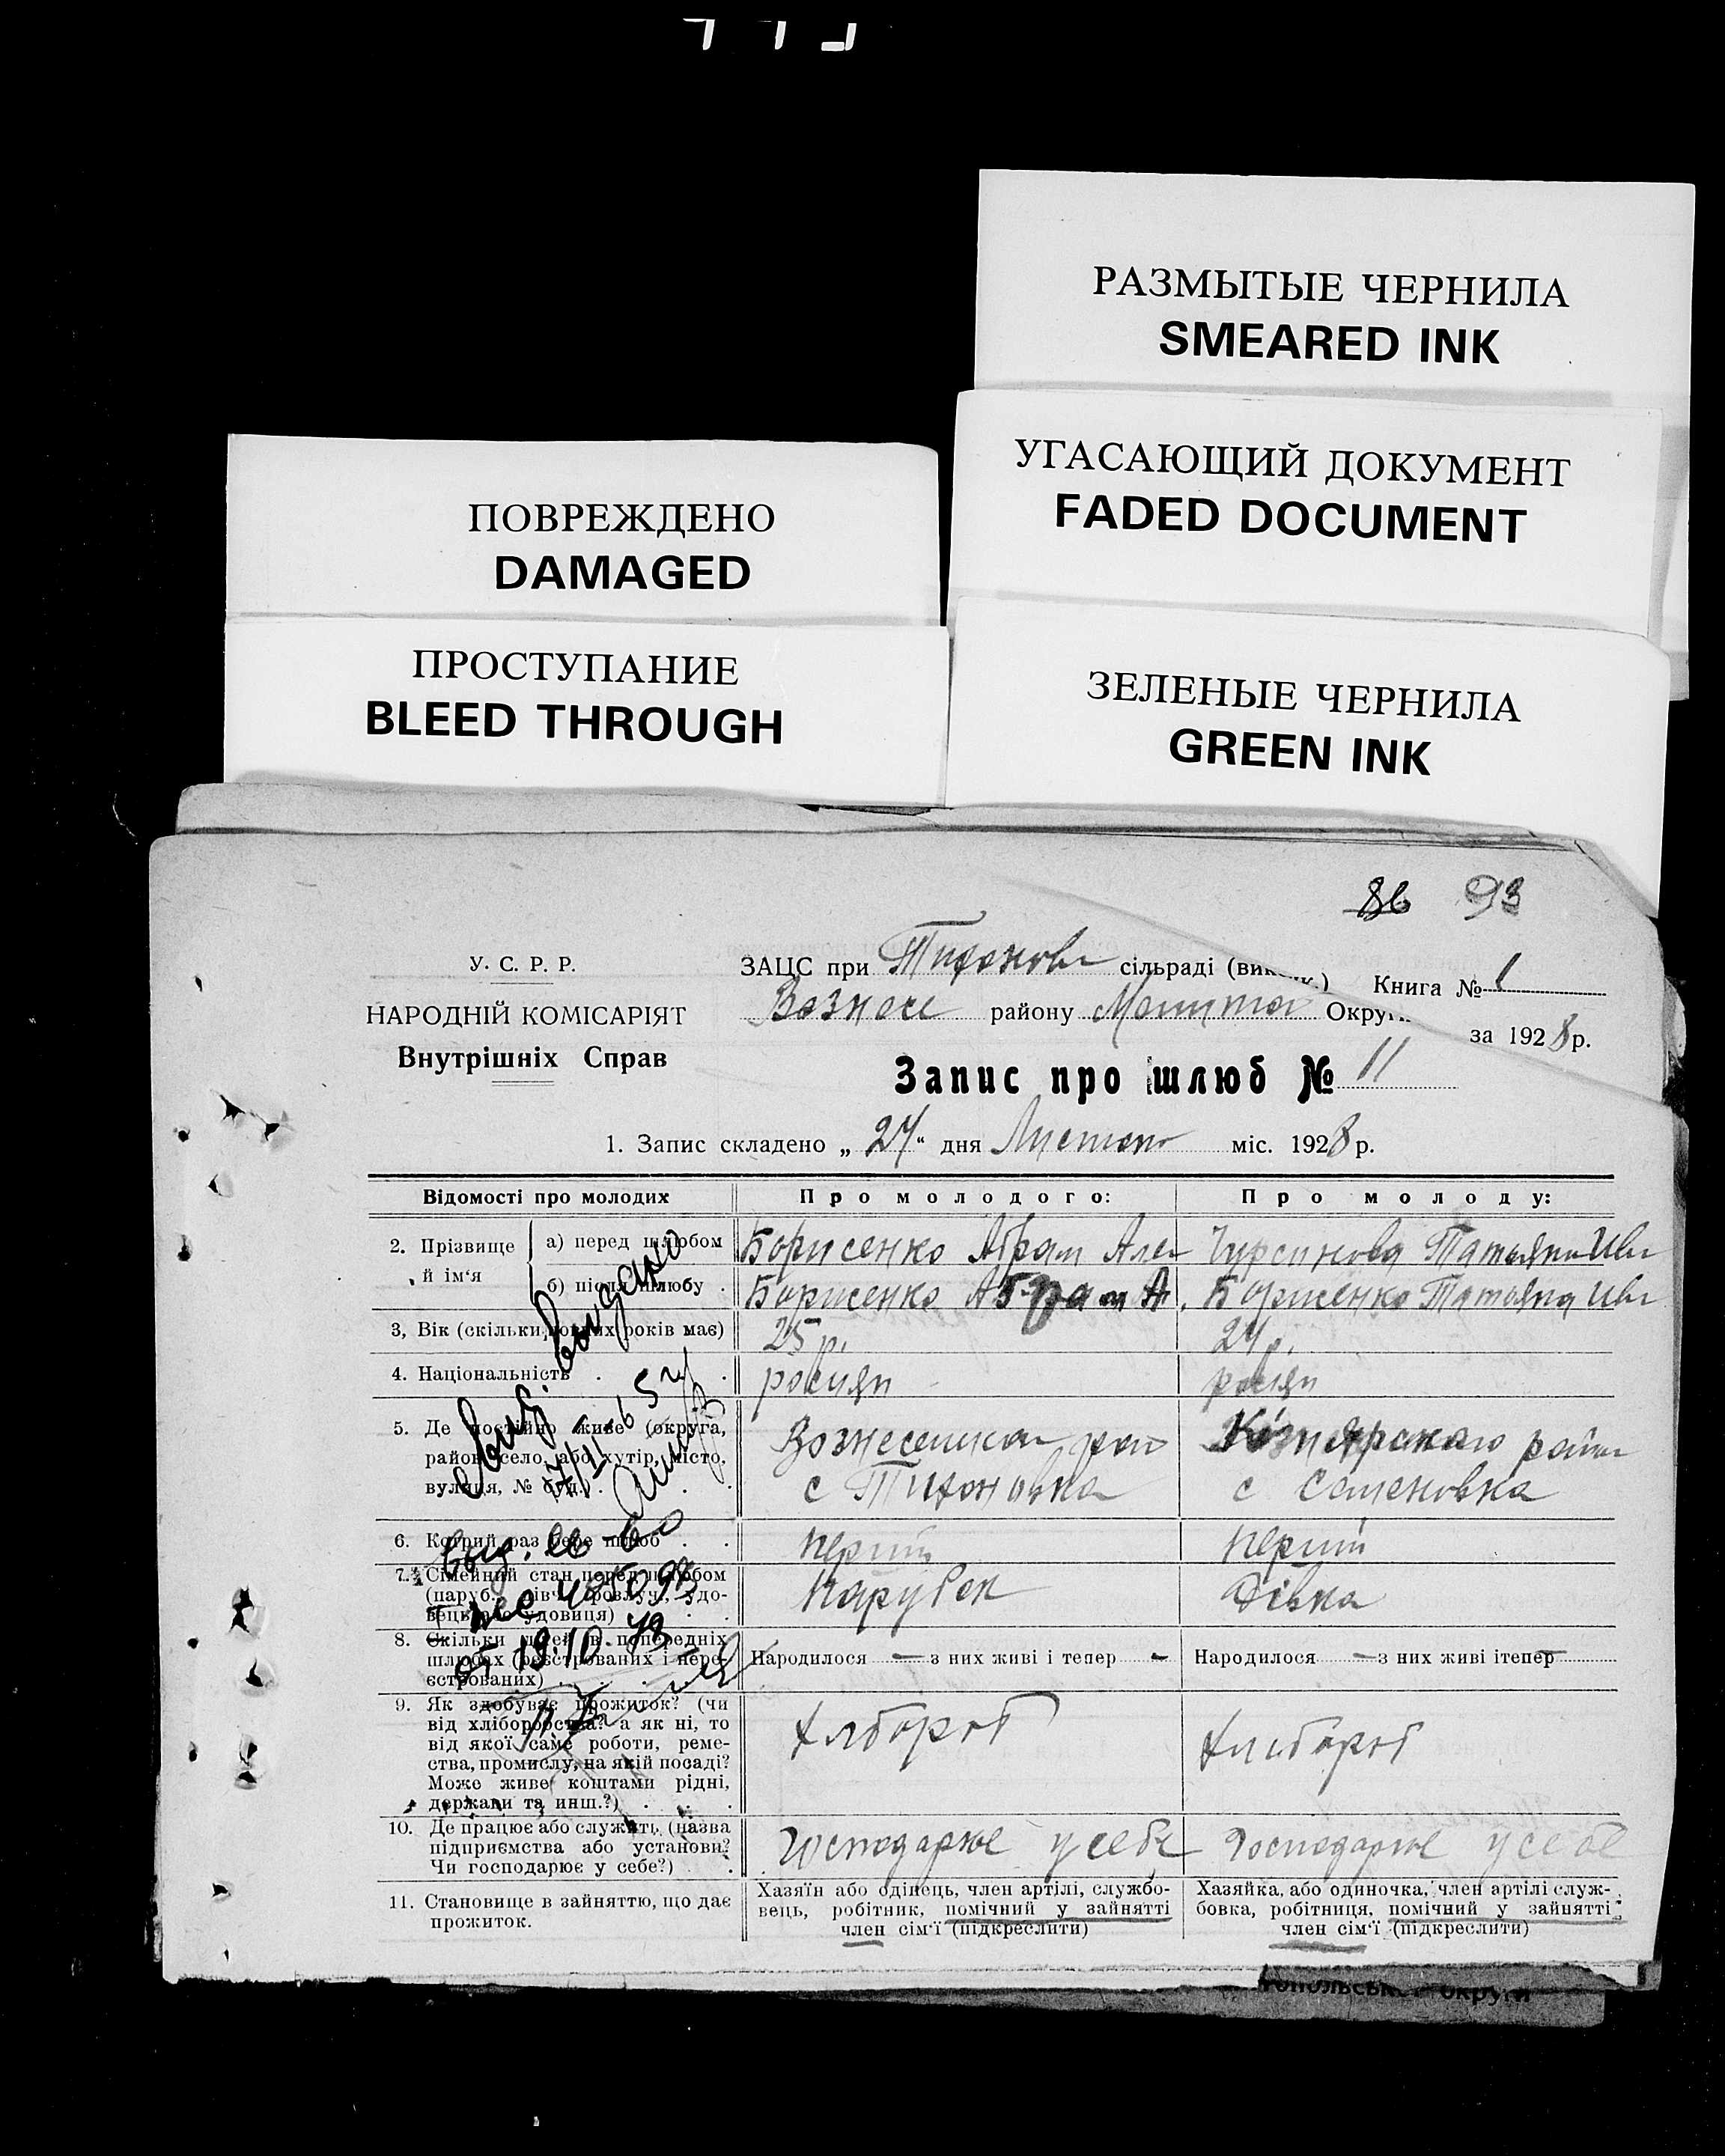 РАЗМЫТЫЕ ЧЕРНИЛА
SMEARED INK
УГАСАЮЩИЙ ДОКУМЕНТ
FADED DOCUMENT
ПОВРЕЖДЕНО
DAMAGED
ПРОСТУПАНИЕ
BLEED THROUGH
ЗЕЛЕНЫЕ ЧЕРНИЛА
GREEN INK
86 93
У. С. Р. Р.
НАРОДНІЙ КОМІСАРІЯТ
Внутрішніх Справ
ЗАЦС при Тихонов сільраді
Книга № 1
Вознесе району Округи
за 1928 р.
Запис про шлюб № 11
1. Запис складено „ 24 “ дня Листопо міс. 1928 р.
Відомості про молодих
Про молодого:
Про молоду:
2. Прізвище й ім‘я
а) перед шлюбом
Борисенко Абрам Алек
Чурсинова Татьяна Ив
б) після шлюбу
Борисенко Абрам А.
Борисенко Татьяна Ив
3, Вік (скільки повних років має)
25 р.
24 р.
4. Національність
росіян
росіян
5. Де постійно живе (округа, район, село, або хутір, місто, вулиця, № буд.)
с Тихоновка
район
с Семеновка
6. Котрий раз бере шлюб
перший
перший
7. Сімейний стан перед шлюбом (паруб., дівч., розлуч., удовець або удовиця)
Парубок
Дівка
8. Скільки дітей в попередніх шлюбах (реєстрованих і нереєстрованих)
Народилося — з них живі і тепер -
Народилося — з них живі ітепер —
9. Як здобуває прожиток? (чи
від хліборобства? а як ні, то
від якої саме роботи, реме-
ства, промислу, на якій посаді?
Може живе коштами рідні,
держави та инш.?)
Хлібороб
Хлибороб
10. Де працює або служить (назва
підприємства або установи?
Чи господарює у себе?)
Господарює у себе
Господарює у себе
11. Становище в зайняттю, що дає
прожиток.
Хазяїн або одінець, член артілі, службо-
вець, робітник, помічний у зайнятті
член сім‘ї (підкреслити)
Хазяйка, або одиночка, член артілі служ-
бовка, робітниця, помічний у зайнятті
член сім‘ї (підкреслити)
округи